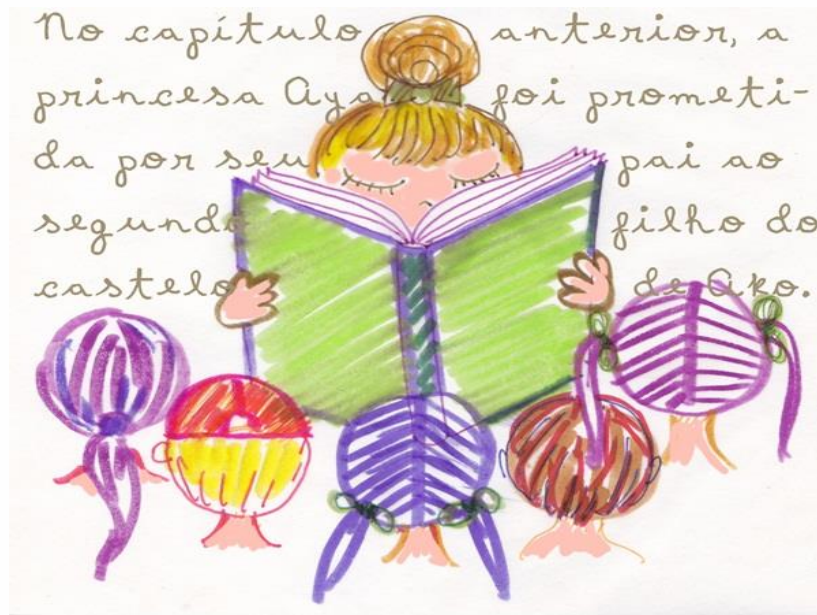 No capítulo anterior, a
princesa foi prometi-
da por seu pai ao
segundo filho do
castelo de Ako.